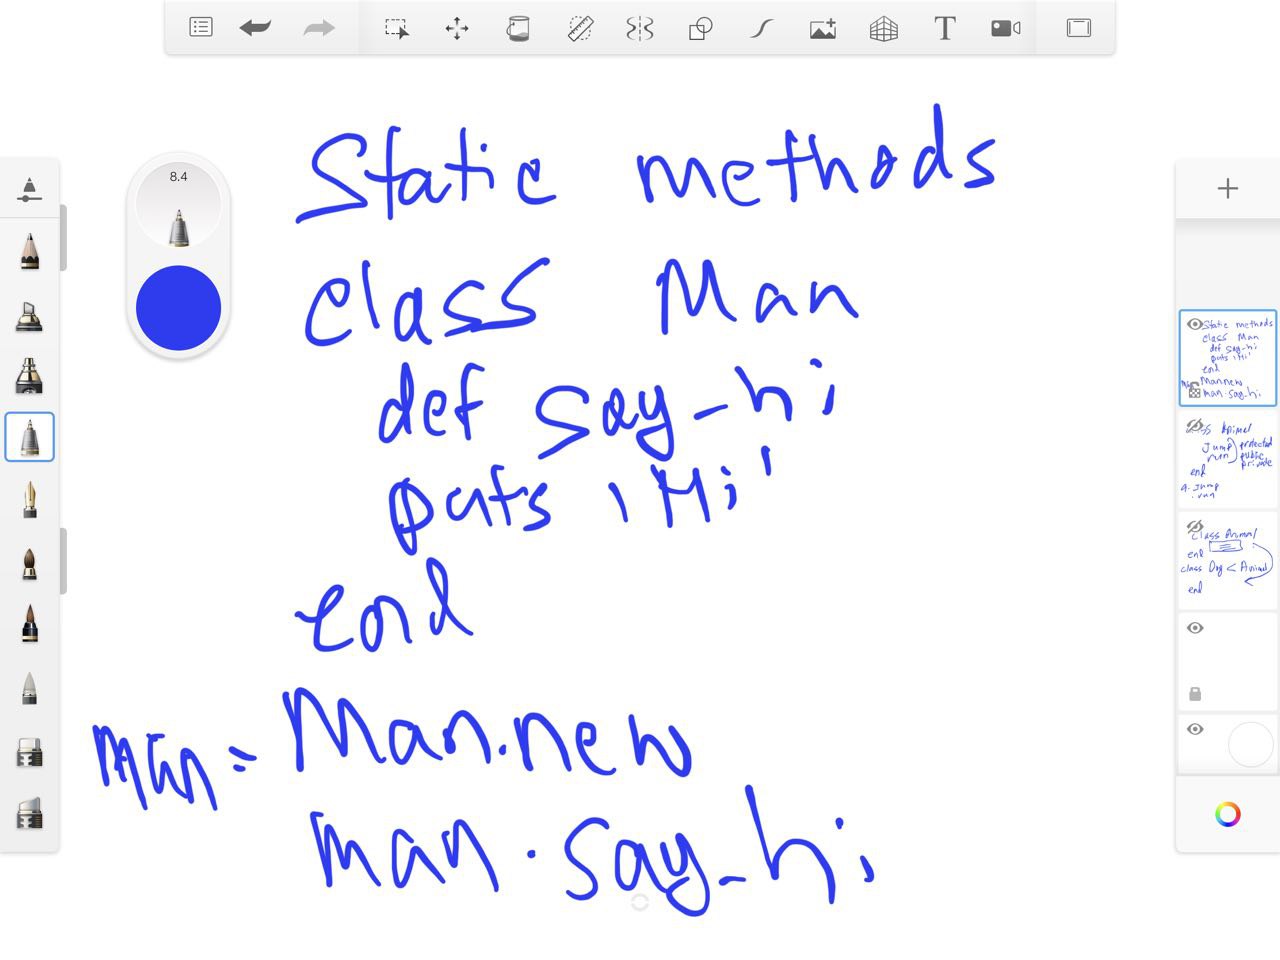 8.4
T
Static methods
class Man
def say_hi
puts 'Hi'
end
man = Man.new
man.say_hi
Static methods
class Man
def say_hi
puts 'Hi'
end
Man.new
man.say_hi
Animal
Jump
run
protected
public
private
end
a. Jump
.run
class Animal
end
class Dog < Animal
end